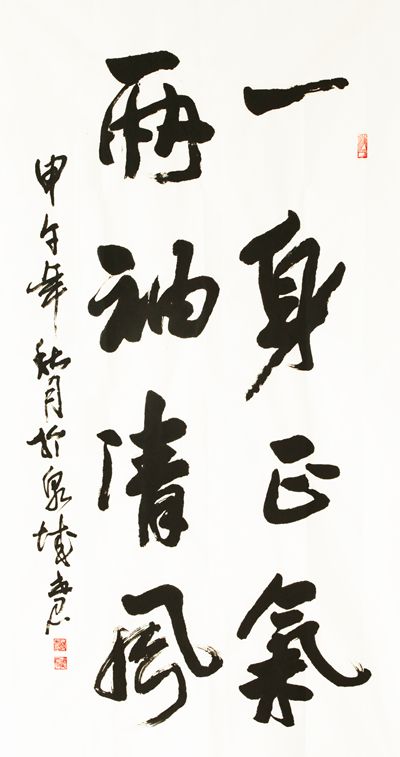 一身正氣
兩袖清風
甲午年秋月於泉城